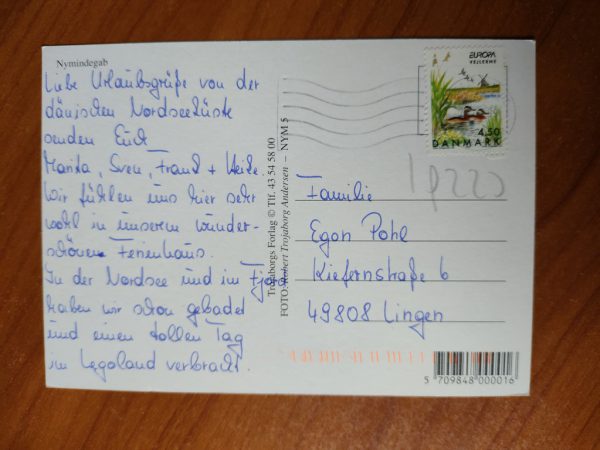 Nymindegab
Liebe Urlaubsgrüße von der
dänischen Nordseeküste
senden Euch
Marita, Sven, Frank + Heike.
Wir fühlen uns hier sehr
wohl in unserem wunder-
schönen Ferienhaus.
In der Nordsee und im Fjord
haben wir schon gebadet
und einen tollen Tag
im Legoland verbracht.
Trojaborgs Forlag © Tlf. 43 54 58 00
FOTO: Robert Trojaborg Andersen – NYM 5
EUROPA
VEJLERNE
4.50
DANMARK
Familie
Egon Pohl
Kiefernstraße 6
49808 Lingen
5 709848 000016